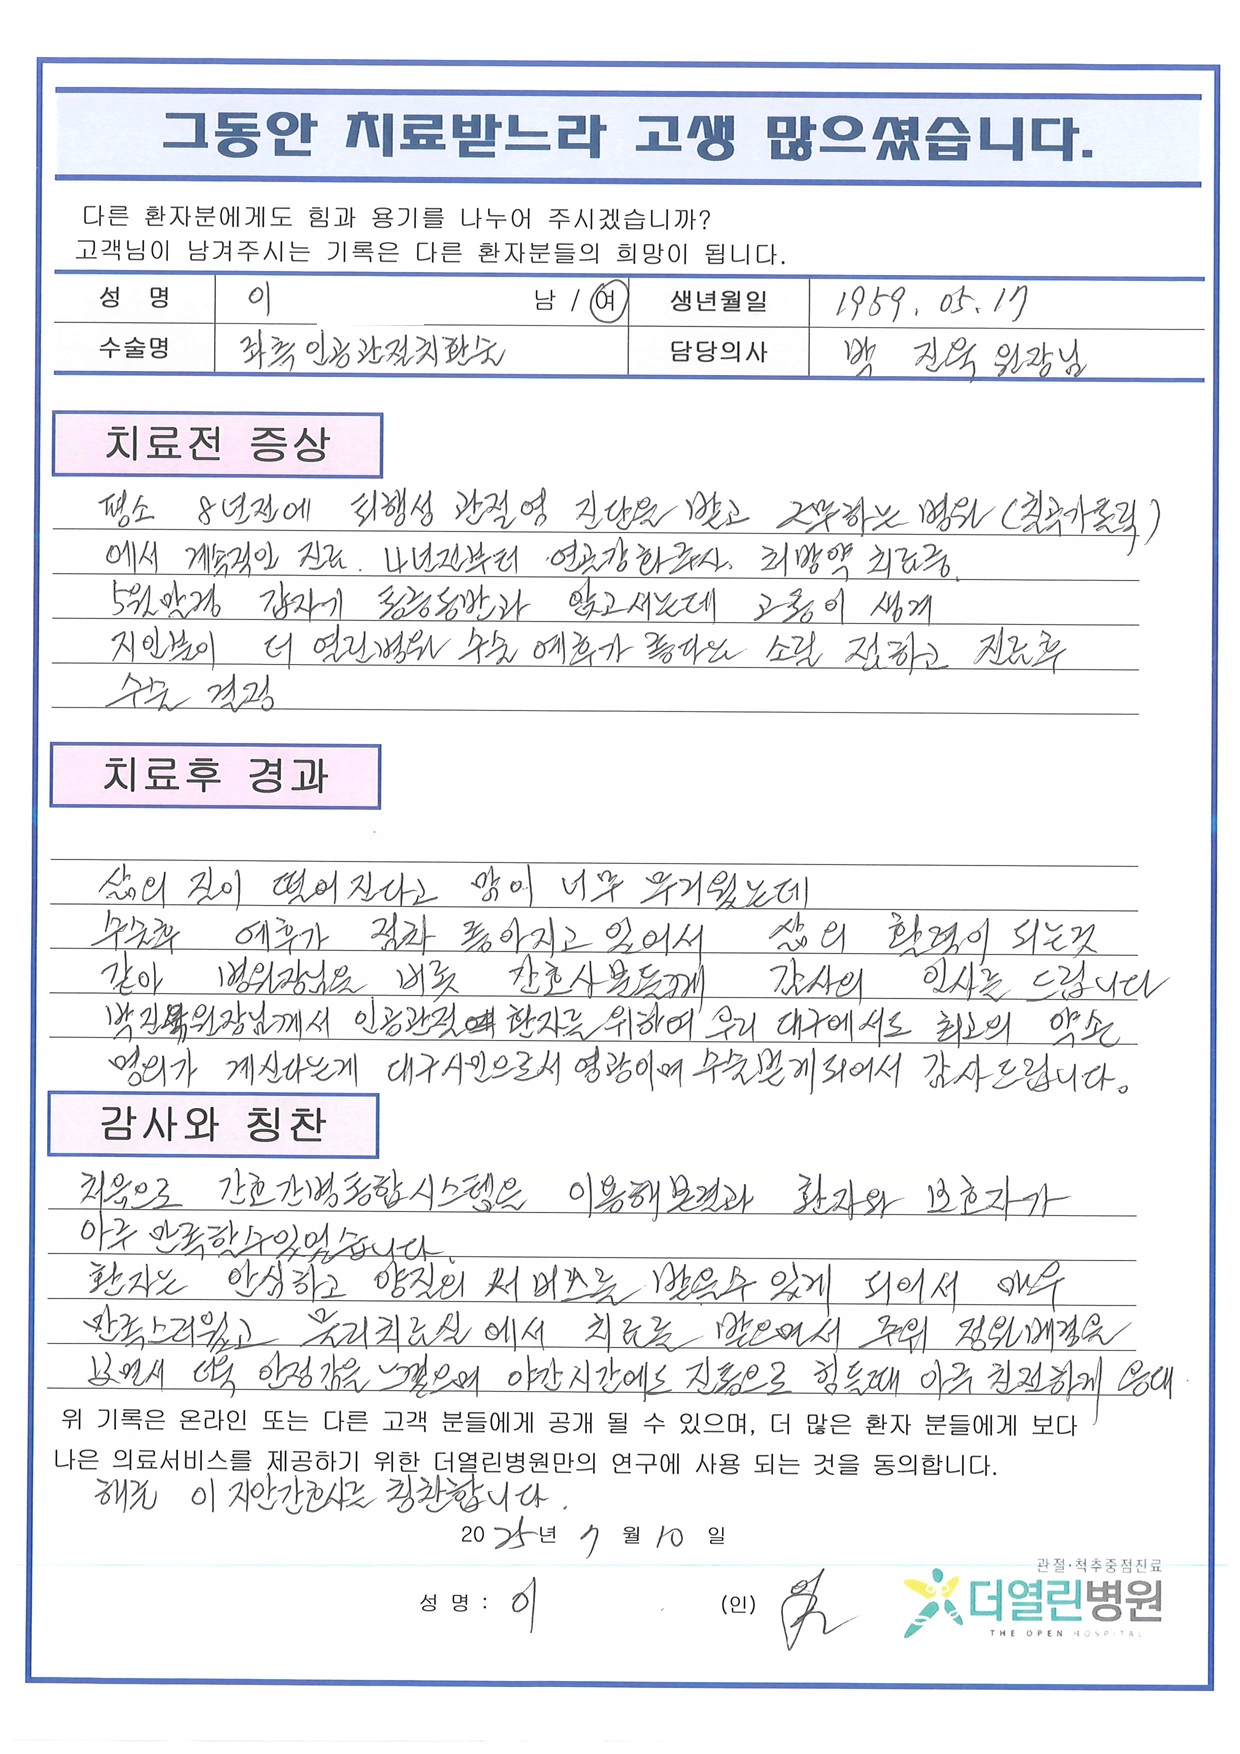 그동안 치료받느라 고생 많으셨습니다.
다른 환자분에게도 힘과 용기를 나누어 주시겠습니까?
고객님이 남겨주시는 기록은 다른 환자분들의 희망이 됩니다.
성 명 이 남 / 여 생년월일 1959. 05. 17
수술명 좌측인공관절치환술 담당의사 박 진욱 원장님
치료전 증상
평소 8년전에 퇴행성 관절염 진단을 받고 근무하는 병원 (칠곡가톨릭)
에서 계속적인 진료. 4년전부터 연골강화주사. 처방약 치료중.
5월말경 갑자기 통증동반과 앉고서는데 고통이 생겨
지인분이 더 열린병원 수술 예후가 좋다는 소릴 접하고 진료후
수술 결정
치료후 경과
삶의 질이 떨어진다고 맘이 너무 무거웠는데
수술후 예후가 점차 좋아지고 있어서 삶의 활력이 되는것
같아 병원장님을 비롯 간호사분들께 감사의 인사를 드립니다
박진욱원장님께서 인공관절 환자를 위하여 우리 대구에서도 최고의 약손
명의가 계신다는게 대구시민으로서 영광이며 수술받게되어서 감사드립니다.
감사와 칭찬
처음으로 간호간병통합시스템을 이용해본결과 환자와 보호자가
아주 만족할수있었습니다.
환자는 안심하고 양질의 써버스를 받을수 있게 되어서 매우
만족스러웠고 물리치료실에서 치료를 받으면서 주위 정원배경을
보면서 더욱 안정감을 느꼈으며 야간시간에도 진통으로 힘들때 아주 친절하게 응대
위 기록은 온라인 또는 다른 고객 분들에게 공개 될 수 있으며, 더 많은 환자 분들에게 보다
나은 의료서비스를 제공하기 위한 더열린병원만의 연구에 사용 되는 것을 동의합니다.
해준 이지안간호사를 칭찬합니다.
2025년 7 월 10 일
관절·척추중점진료
성 명 : 이 (인)
더열린병원
THE OPEN HOSPITAL